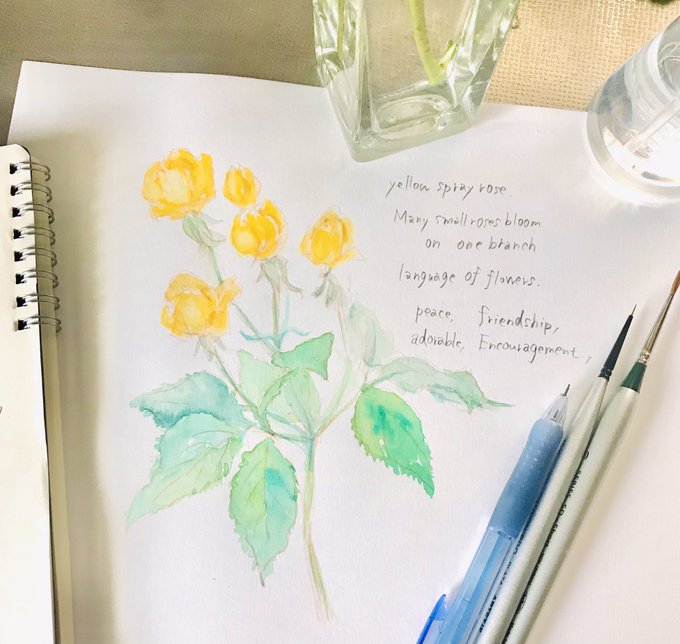 yellow spray rose
Many small roses bloom
on one branch
language of flowers.
peace, friendship,
adorable, Encouragement,